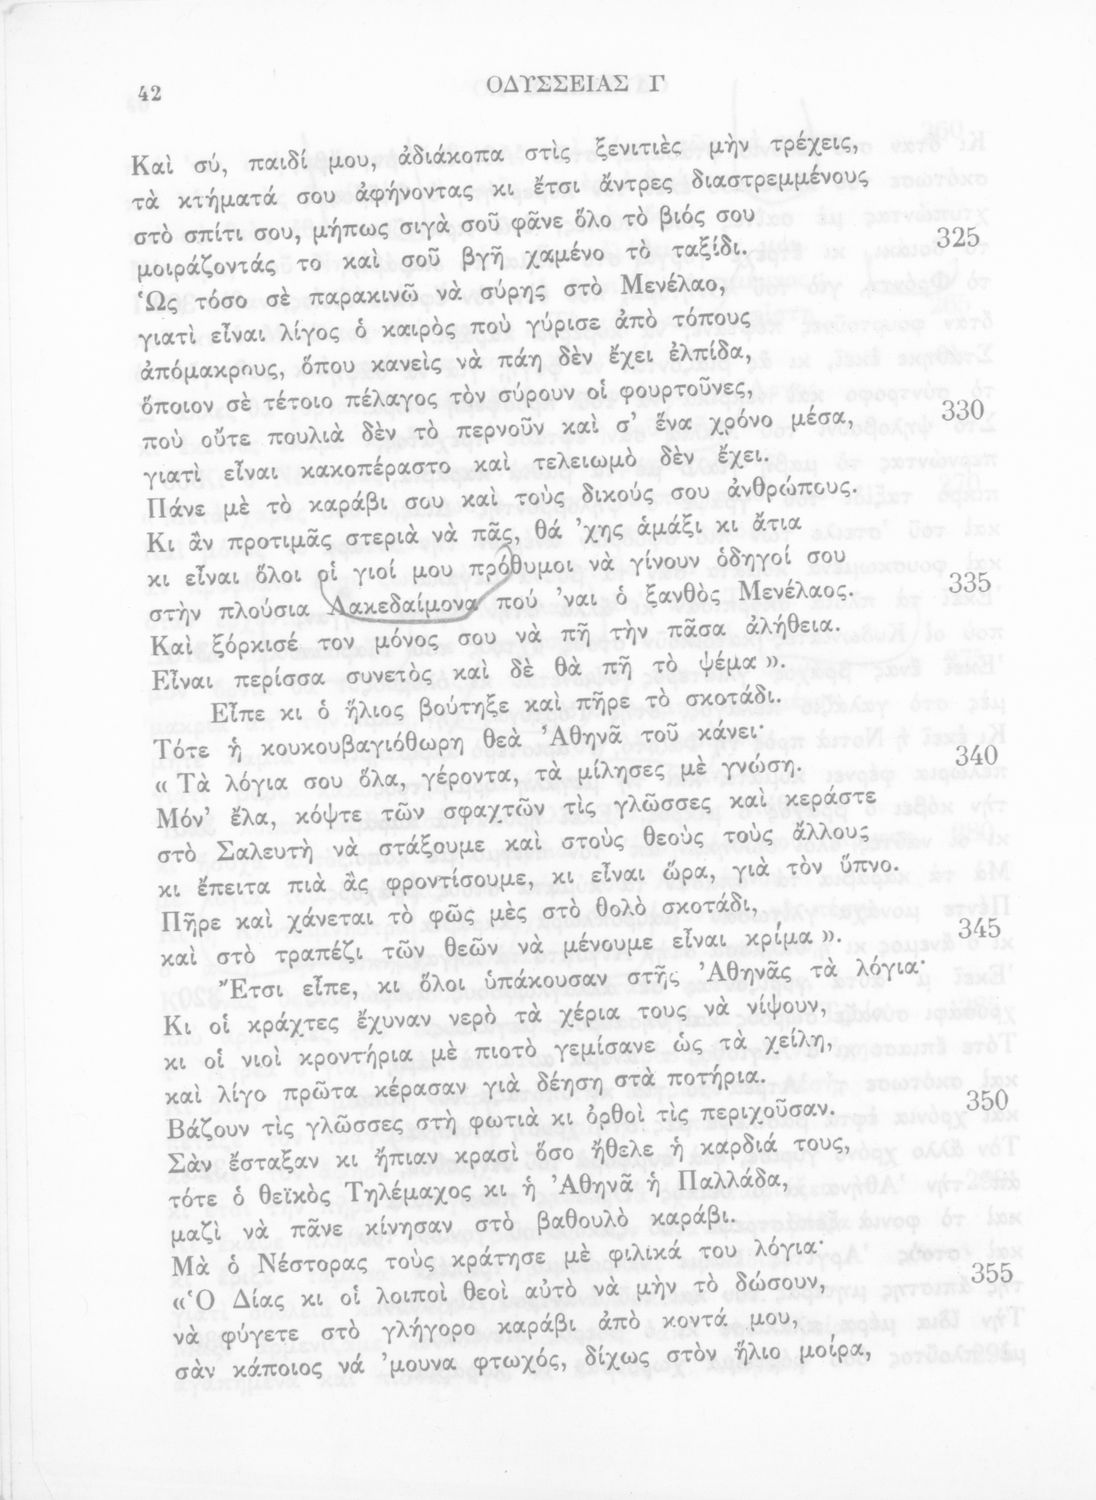 42
ΟΔΥΣΣΕΙΑΣ Γ
Καὶ σύ, παιδί μου, ἀδιάκοπα στὶς ξενιτιὲς μὴν τρέχεις,
τὰ κτήματά σου ἀφήνοντας κι ἔτσι ἄντρες διαστρεμμένους
στὸ σπίτι σου, μήπως σιγὰ σοῦ φᾶνε ὅλο τὸ βιός σου
μοιράζοντάς το καὶ σοῦ βγῆ χαμένο τὸ ταξίδι. 325
Ὡς τόσο σὲ παρακινῶ νὰ σύρης στὸ Μενέλαο,
γιατὶ εἶναι λίγος ὁ καιρὸς ποὺ γύρισε ἀπὸ τόπους
ἀπόμακρους, ὅπου κανεὶς νὰ πάη δὲν ἔχει ἐλπίδα,
ὅποιον σὲ τέτοιο πέλαγος τὸν σύρουν οἱ φουρτοῦνες,
ποὺ οὔτε πουλιὰ δὲν τὸ περνοῦν καὶ σ’ ἕνα χρόνο μέσα, 330
γιατὶ εἶναι κακοπέραστο καὶ τελειωμὸ δὲν ἔχει.
Πάνε μὲ τὸ καράβι σου καὶ τοὺς δικούς σου ἀνθρώπους.
Κι ἂν προτιμᾶς στεριὰ νὰ πᾶς, θά ’χης ἁμάξι κι ἄτια
κι εἶναι ὅλοι οἱ γιοί μου πρόθυμοι νὰ γίνουν ὁδηγοί σου
στὴν πλούσια Λακεδαίμονα πού ’ναι ὁ ξανθὸς Μενέλαος. 335
Καὶ ξόρκισέ τον μόνος σου νὰ πῆ τὴν πᾶσα ἀλήθεια.
Εἶναι περίσσα συνετὸς καὶ δὲ θὰ πῆ τὸ ψέμα».
Εἶπε κι ὁ ἥλιος βούτηξε καὶ πῆρε τὸ σκοτάδι.
Τότε ἡ κουκουβαγιόθωρη θεὰ Ἀθηνᾶ τοῦ κάνει·
«Τὰ λόγια σου ὅλα, γέροντα, τὰ μίλησες μὲ γνώση. 340
Μόν’ ἔλα, κόψτε τῶν σφαχτῶν τὶς γλῶσσες καὶ κεράστε
στὸ Σαλευτὴ νὰ στάξουμε καὶ στοὺς θεοὺς τοὺς ἄλλους
κι ἔπειτα πιὰ ἂς φροντίσουμε, κι εἶναι ὥρα, γιὰ τὸν ὕπνο.
Πῆρε καὶ χάνεται τὸ φῶς μὲς στὸ θολὸ σκοτάδι,
καὶ στὸ τραπέζι τῶν θεῶν νὰ μένουμε εἶναι κρίμα». 345
Ἔτσι εἶπε, κι ὅλοι ὑπάκουσαν στῆς Ἀθηνᾶς τὰ λόγια·
Κι οἱ κράχτες ἔχυναν νερὸ τὰ χέρια τους νὰ νίψουν,
κι οἱ νιοὶ κροντήρια μὲ πιοτὸ γεμίσανε ὡς τὰ χείλη,
καὶ λίγο πρῶτα κέρασαν γιὰ δέηση στὰ ποτήρια.
Βάζουν τὶς γλῶσσες στὴ φωτιὰ κι ὀρθοὶ τὶς περιχοῦσαν. 350
Σὰν ἔσταξαν κι ἤπιαν κρασὶ ὅσο ἤθελε ἡ καρδιά τους,
τότε ὁ θεϊκὸς Τηλέμαχος κι ἡ Ἀθηνᾶ ἡ Παλλάδα,
μαζὶ νὰ πᾶνε κίνησαν στὸ βαθουλὸ καράβι.
Μὰ ὁ Νέστορας τοὺς κράτησε μὲ φιλικά του λόγια·
«Ὁ Δίας κι οἱ λοιποὶ θεοὶ αὐτὸ νὰ μὴν τὸ δώσουν, 355
νὰ φύγετε στὸ γλήγορο καράβι ἀπὸ κοντά μου,
σὰν κάποιος νά ’μουνα φτωχός, δίχως στὸν ἥλιο μοίρα,